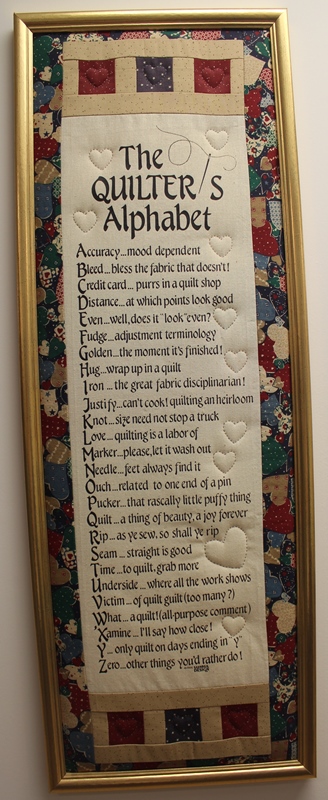 The
QUILTER'S
Alphabet
Accuracy...mood dependent
Bleed...bless the fabric that doesn't!
Credit card... purrs in a quilt shop
Distance...at which points look good
Even...well, does it "look" even?
Fudge...adjustment terminology
Golden...the moment it's finished!
Hug...wrap up in a quilt
Iron ... the great fabric disciplinarian!
Justify...can't cook! quilting an heirloom
Knot...size need not stop a truck
Love... quilting is a labor of
Marker...please, let it wash out
Needle...feet always find it
Ouch...related to one end of a pin
Pucker...that rascally little puffy thing
Quilt... a thing of beauty, a joy forever
Rip... as ye sew, so shall ye rip
Seam ... straight is good
Time...to quilt, grab more
Underside ... where all the work shows
Victim... of quilt guilt (too many?)
What... a quilt! (all-purpose comment)
'Xamine ... I'll say how close!
Y... only quilt on days ending in "y"
Zero...other things you'd rather do!